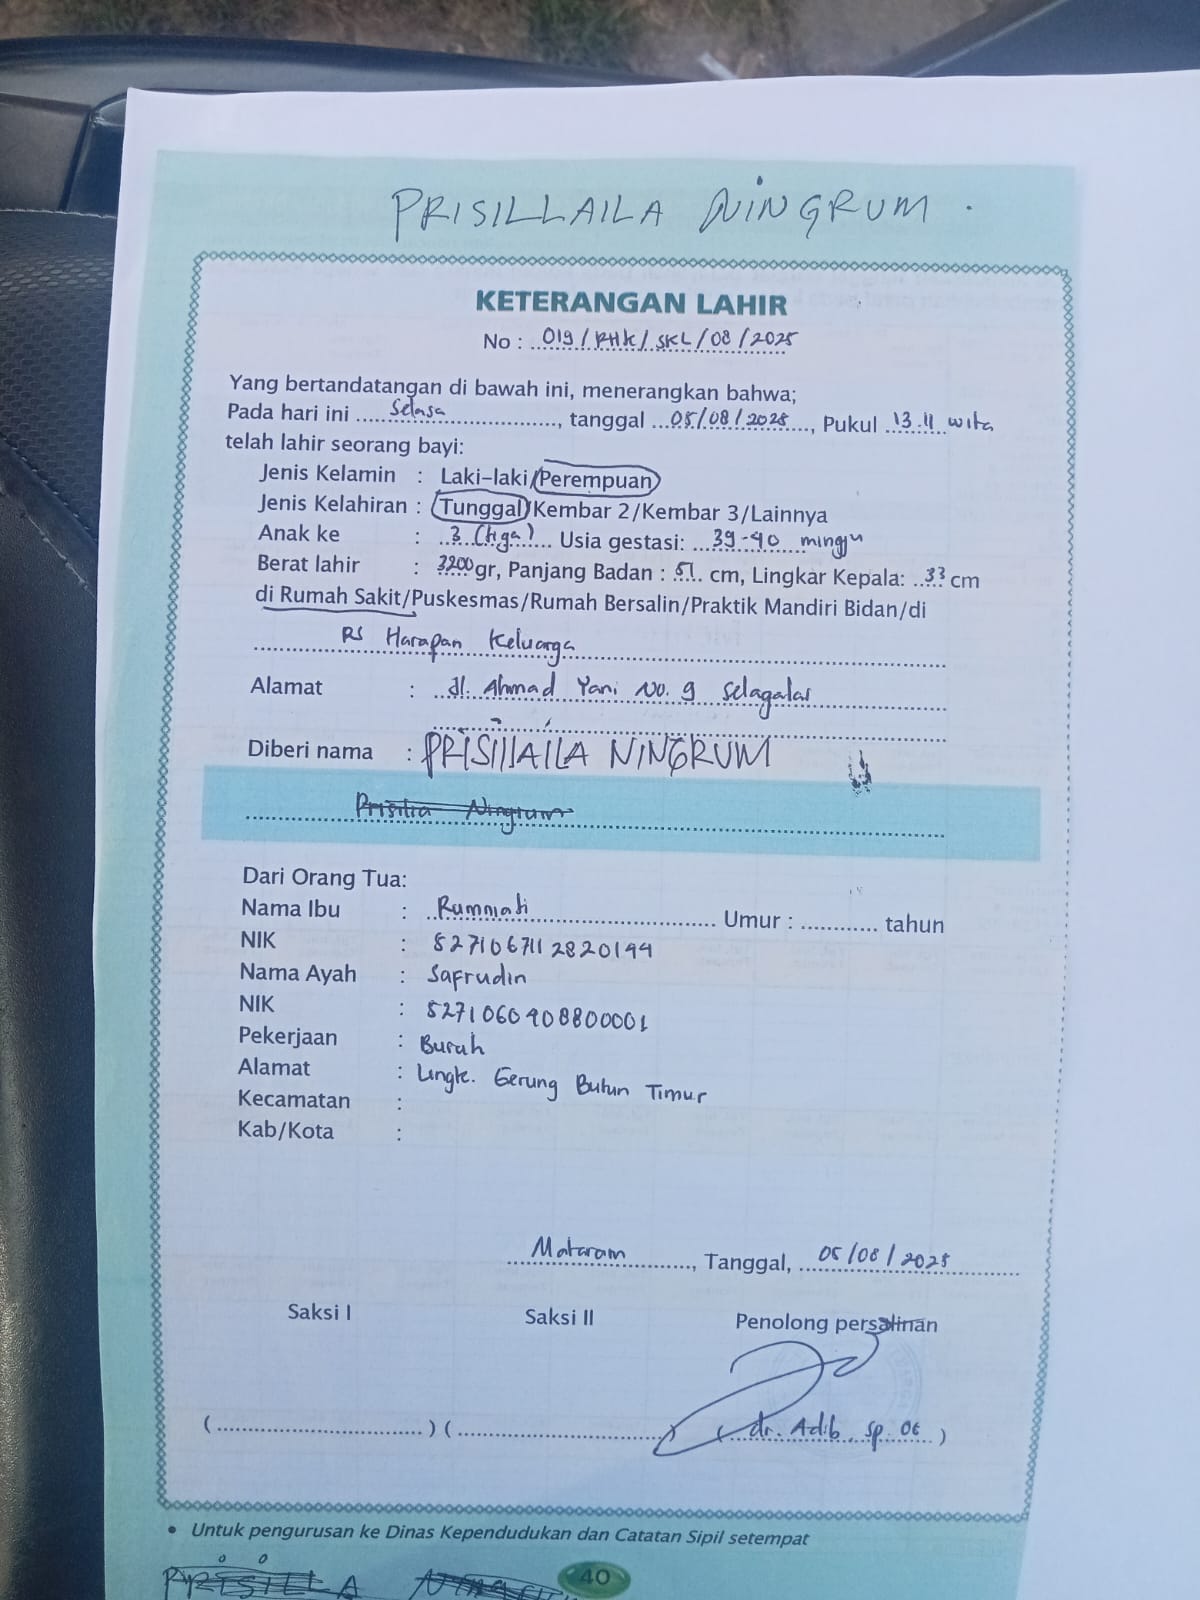 PRISILLAILA NINGRUM .
KETERANGAN LAHIR
No : 019/RHK/SKL/08/2025
Yang bertandatangan di bawah ini, menerangkan bahwa;
Pada hari ini Selasa, tanggal 05/08/2025, Pukul 13.11 wita
telah lahir seorang bayi:
Jenis Kelamin : Laki-laki/Perempuan
Jenis Kelahiran : Tunggal/Kembar 2/Kembar 3/Lainnya
Anak ke : 3 (tiga) Usia gestasi: 39-40 minggu
Berat lahir : 3200 gr, Panjang Badan : 51 cm, Lingkar Kepala: 33 cm
di Rumah Sakit/Puskesmas/Rumah Bersalin/Praktik Mandiri Bidan/di
RS Harapan Keluarga
Alamat : Jl. Ahmad Yani No. 9 Selagalas
Diberi nama : PRISILLAILA NINGRUM
Prisilia Ningrum
Dari Orang Tua:
Nama Ibu : Rumniati Umur : ............ tahun
NIK : 5271067112820144
Nama Ayah : Safrudin
NIK : 5271060908800001
Pekerjaan : Buruh
Alamat : Lingk. Gerung Butun Timur
Kecamatan :
Kab/Kota :
Mataram, Tanggal, 05/08/2025
Saksi I Saksi II Penolong persalinan
(..............................) (..............................) (dr. Adib, Sp. OG)
• Untuk pengurusan ke Dinas Kependudukan dan Catatan Sipil setempat
PRISILLA
40